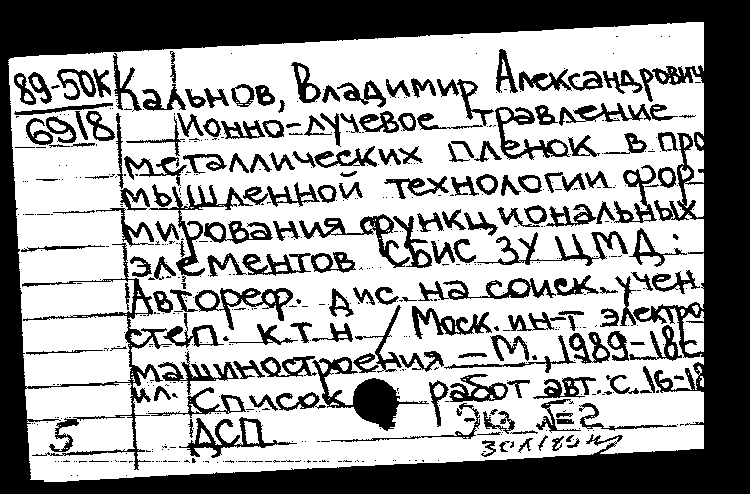 89-50К Кальнов, Владимир Александрович
6918 Ионно-лучевое травление
металлических пленок в про
мышленной технологии фор-
мирования функциональных
элементов СБИС ЗУ ЦМД:
Автореф. дис. на соиск. учен.
степ. к.т.н. / Моск. ин-т электро
машиностроения - М., 1989.-18с
ил. Список работ авт.: с. 16-18
Экз №2
5 ДСП